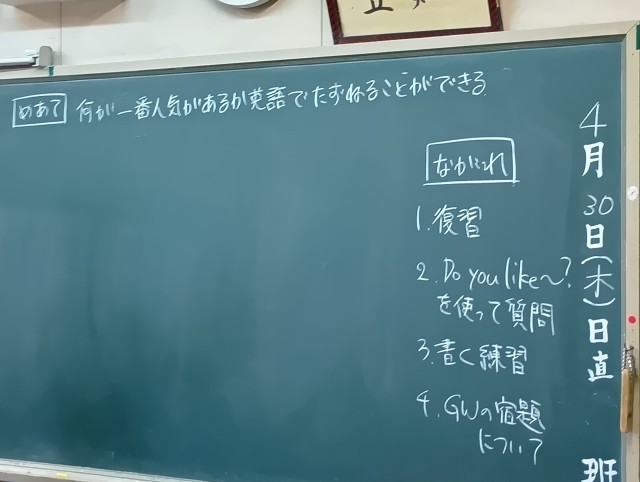 めあて 何が一番人気があるか英語でたずねることができる。
ながれ
1. 復習
2. Do you like~?
を使って質問
3. 書く練習
4. GWの宿題
について
4月30日(木)日直
班